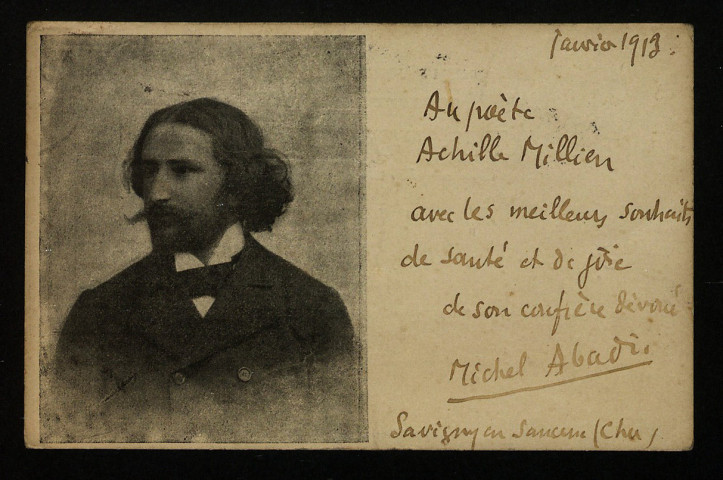 Janvier 1913 :
Au poète
Achille Millien
avec les meilleurs souhaits
de santé et de joie
de son confrère dévoué
Michel Abadie
Savigny en Sancerre (Cher)